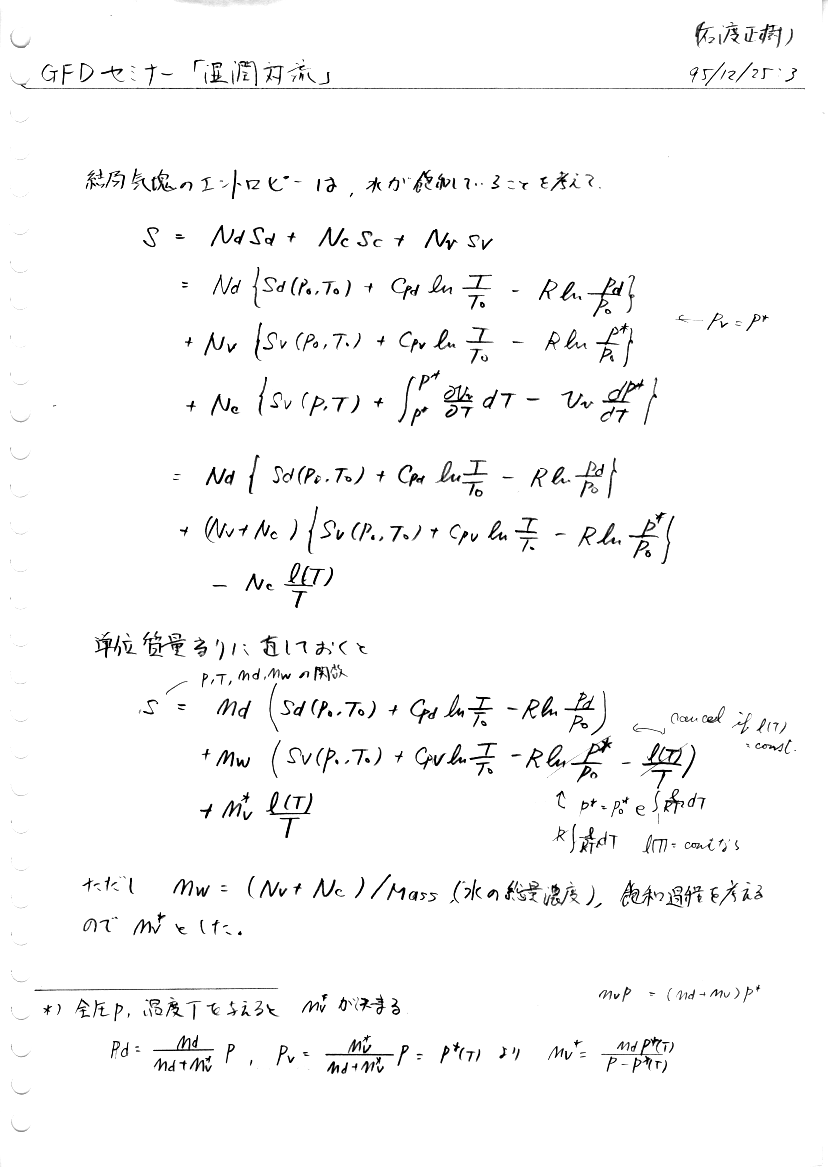 (石渡正樹)
GFDセミナー「湿潤対流」 95/12/25:3
結局気塊のエントロピーは、水が飽和していることを考えて.
S = Nd Sd + Nc Sc + Nv Sv
= Nd {Sd(P0,T0) + Cpd ln T/T0 - R ln Pd/P0}
+ Nv {Sv(P0,T0) + Cpv ln T/T0 - R ln P*/P0} ← Pv = P*
+ Nc {Sv(P,T) + ∫_{P*}^{P*} ∂Vv/∂T dT - Vv dP*/dT}
= Nd {Sd(P0,T0) + Cpd ln T/T0 - R ln Pd/P0}
+ (Nv+Nc) {Sv(P0,T0) + Cpv ln T/T0 - R ln P*/P0}
- Nc l(T)/T
単位質量当りに直しておくと
P,T,md,mwの関数
S = md (Sd(P0,T0) + Cpd ln T/T0 - R ln Pd/P0)
+ mw (Sv(P0,T0) + Cpv ln T/T0 - R ln P*/P0 - l(T)/T) ← cancel if l(T) = const.
+ mv* l(T)/T
↑ P* = P0* e ∫ dT
R∫ dT l(T) = constなら
ただし mw = (Nv+Nc)/Mass (水の総量濃度), 飽和過程を考える
ので mv* とした。
*) 全圧P, 温度Tを与えると mv* が決まる.
mvP = (md+mv)P*
Pd = md/(md+mv*) P, Pv = mv*/(md+mv*) P = P*(T) より mv* = mdP*(T)/(P-P*(T))